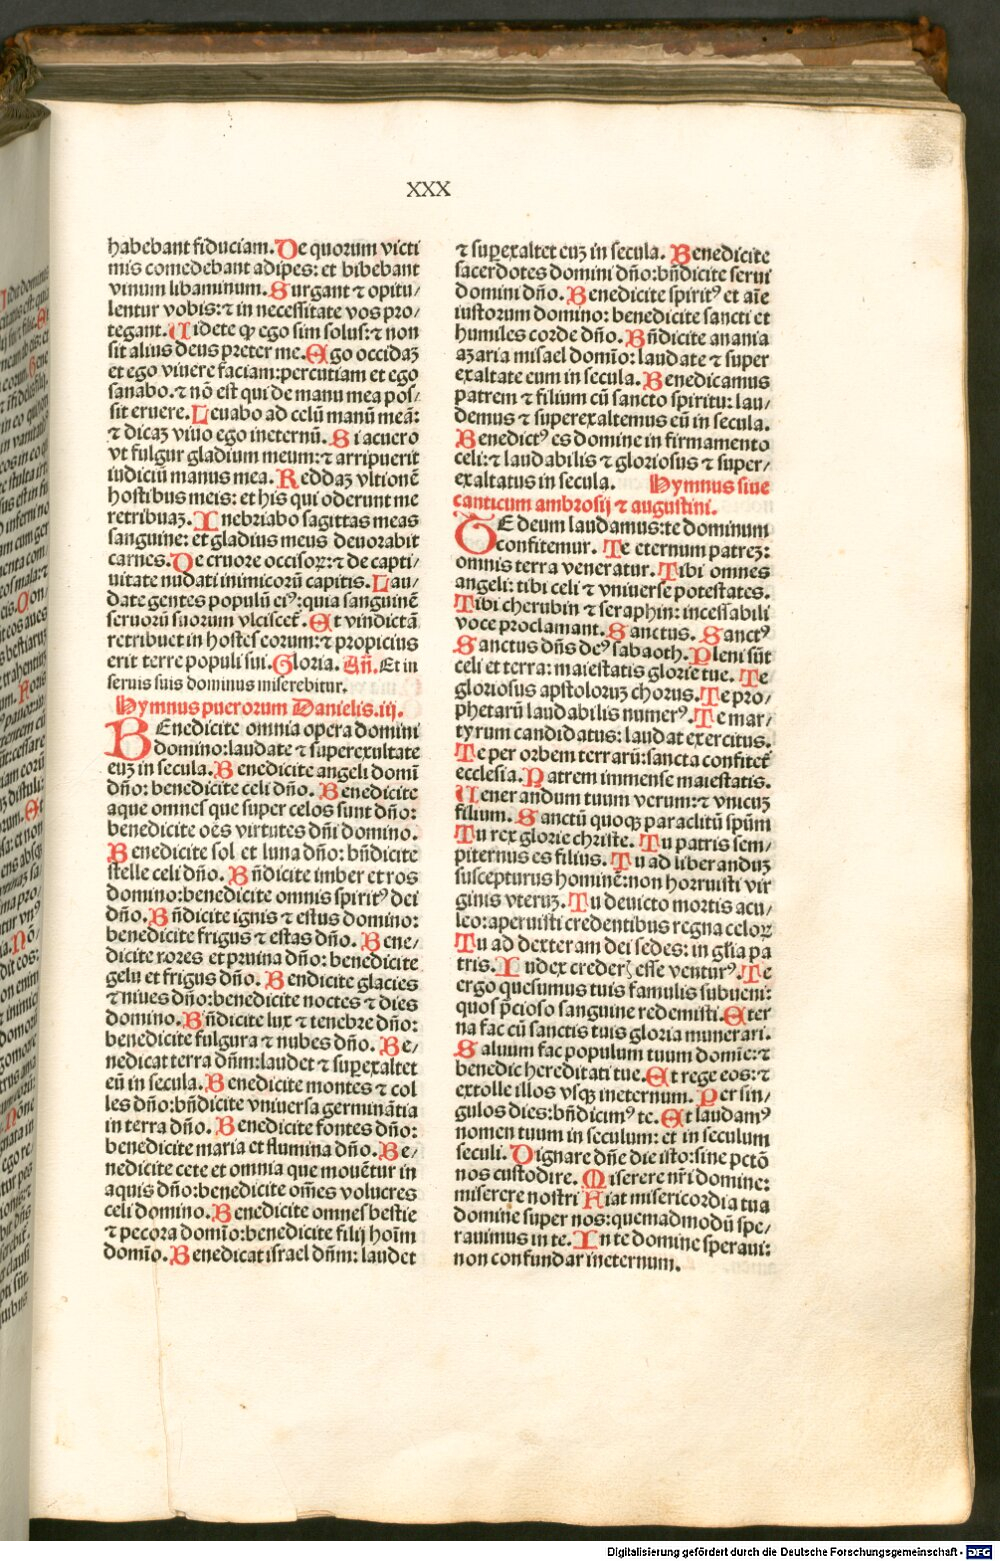 xxx
habebant fiduciam. De quorum victi
mis comedebant adipes: et bibebant
vinum libaminum. Surgant ⁊ opitu/
lentur vobis: ⁊ in necessitate vos pro/
tegant. Uidete ꝙ ego sim solus: ⁊ non
sit alius deus preter me. Ego occidaꝫ
et ego viuere faciam: percutiam et ego
sanabo. ⁊ nō est qui de manu mea pos/
sit eruere. Leuabo ad celū manū meā:
⁊ dicaꝫ viuo ego ineternū. Si acuero
vt fulgur gladium meum: ⁊ arripuerit
iudiciū manus mea. Reddaꝫ vltionē
hostibus meis: et his qui oderunt me
retribuaꝫ. Inebriabo sagittas meas
sanguine: et gladius meus deuorabit
carnes. De cruore occisoꝝ: ⁊ de capti/
uitate nudati inimicorū capitis. Lau/
date gentes populū eiꝰ: quia sanguinē
seruorū suorum vlciscet̄. Et vindictā
retribuet in hostes eorum: ⁊ propicius
erit terre populi sui. Gloria. Añ. Et in
seruis suis dominus miserebitur.
Hymnus puerorum Danielis. iij.
BEnedicite omnia opera domini
domino: laudate ⁊ superexultate
euꝫ in secula. Benedicite angeli domī
dño: benedicite celi dño. Benedicite
aque omnes que super celos sunt dño:
benedicite oēs virtutes dñi domino.
Benedicite sol et luna dño: bñdicite
stelle celi dño. Bñdicite imber et ros
domino: benedicite omnis spiritꝰ dei
dño. Bñdicite ignis ⁊ estus domino:
benedicite frigus ⁊ estas dño. Bene/
dicite rores et pruina dño: benedicite
gelu et frigus dño. Bendicite glacies
⁊ niues dño: benedicite noctes ⁊ dies
domino. Bñdicite lux ⁊ tenebre dño:
benedicite fulgura ⁊ nubes dño. Be/
nedicat terra dñm: laudet ⁊ suꝑexaltet
eū in secula. Benedicite montes ⁊ col
les dño: bñdicite vniuersa germinātia
in terra dño. Benedicite fontes dño:
benedicite maria et flumina dño. Be/
nedicite cete et omnia que mouētur in
aquis dño: benedicite om̄es volucres
celi domino. Benedicite omnes bestie
⁊ pecora domīo: benedicite filij hoīm
domīo. Benedicat israel dñm: laudet
⁊ suꝑexaltet euꝫ in secula. Benedicite
sacerdotes domini dño: bñdicite serui
domini dño. Benedicite spiritꝰ et aīe
iustorum domino: benedicite sancti et
humiles corde dño. Bñdicite anania
aꝫaria misael domīo: laudate ⁊ super
exaltate eum in secula. Benedicamus
patrem ⁊ filium cū sancto spiritu: lau/
demus ⁊ superexaltemus eū in secula.
Benedictꝰ es domine in firmamento
celi: ⁊ laudabilis ⁊ gloriosus ⁊ super/
exaltatus in secula. Hymnus siue
canticum ambrosij ⁊ augustini.
TE deum laudamus: te dominum
confitemur. Te eternum patreꝫ:
omnis terra veneratur. Tibi omnes
angeli: tibi celi ⁊ vniuerse potestates.
Tibi cherubin ⁊ seraphin: incessabili
voce proclamant. Sanctus. Sanctꝰ
Sanctus dñs deꝰ sabaoth. Pleni sūt
celi et terra: maiestatis glorie tue. Te
gloriosus apstoloruꝫ chorus. Te pro/
phetarū laudabilis numerꝰ. Te mar/
tyrum candidatus: laudat exercitus.
Te per orbem terrarū: sancta confitet̄
ecclesia. Patrem immense maiestatis.
Uenerandum tuum verum: ⁊ vnicuꝫ
filium. Sanctū quoqꝫ paraclitū spūm
Tu rex glorie christe. Tu patris sem/
piternus es filius. Tu ad liberanduꝫ
suscepturus hominē: non horruisti vir
ginis vteruꝫ. Tu deuicto mortis acu/
leo: aperuisti credentibus regna celoꝝ
Tu ad dexteram dei sedes: in gl̄ia pa
tris. Iudex crederꝭ esse venturꝰ. Te
ergo quesumus tuis famulis subueni:
quos p̄cioso sanguine redemisti. Eter
na fac cū sanctis tuis gloria munerari.
Saluum fac populum tuum domīe: ⁊
benedic hereditati tue. Et rege eos: ⁊
extolle illos vsqꝫ ineternum. Per sin/
gulos dies: bñdicimꝰ te. Et laudamꝰ
nomen tuum in seculum: et in seculum
seculi. Dignare dñe die isto: sine pctō
nos custodire. Miserere nr̄i domine:
miserere nostri Fiat misericordia tua
domine super nos: quemadmodū spe/
rauimus in te. In te domine speraui:
non confundar ineternum.
Digitalisierung gefördert durch die Deutsche Forschungsgemeinschaft - DFG